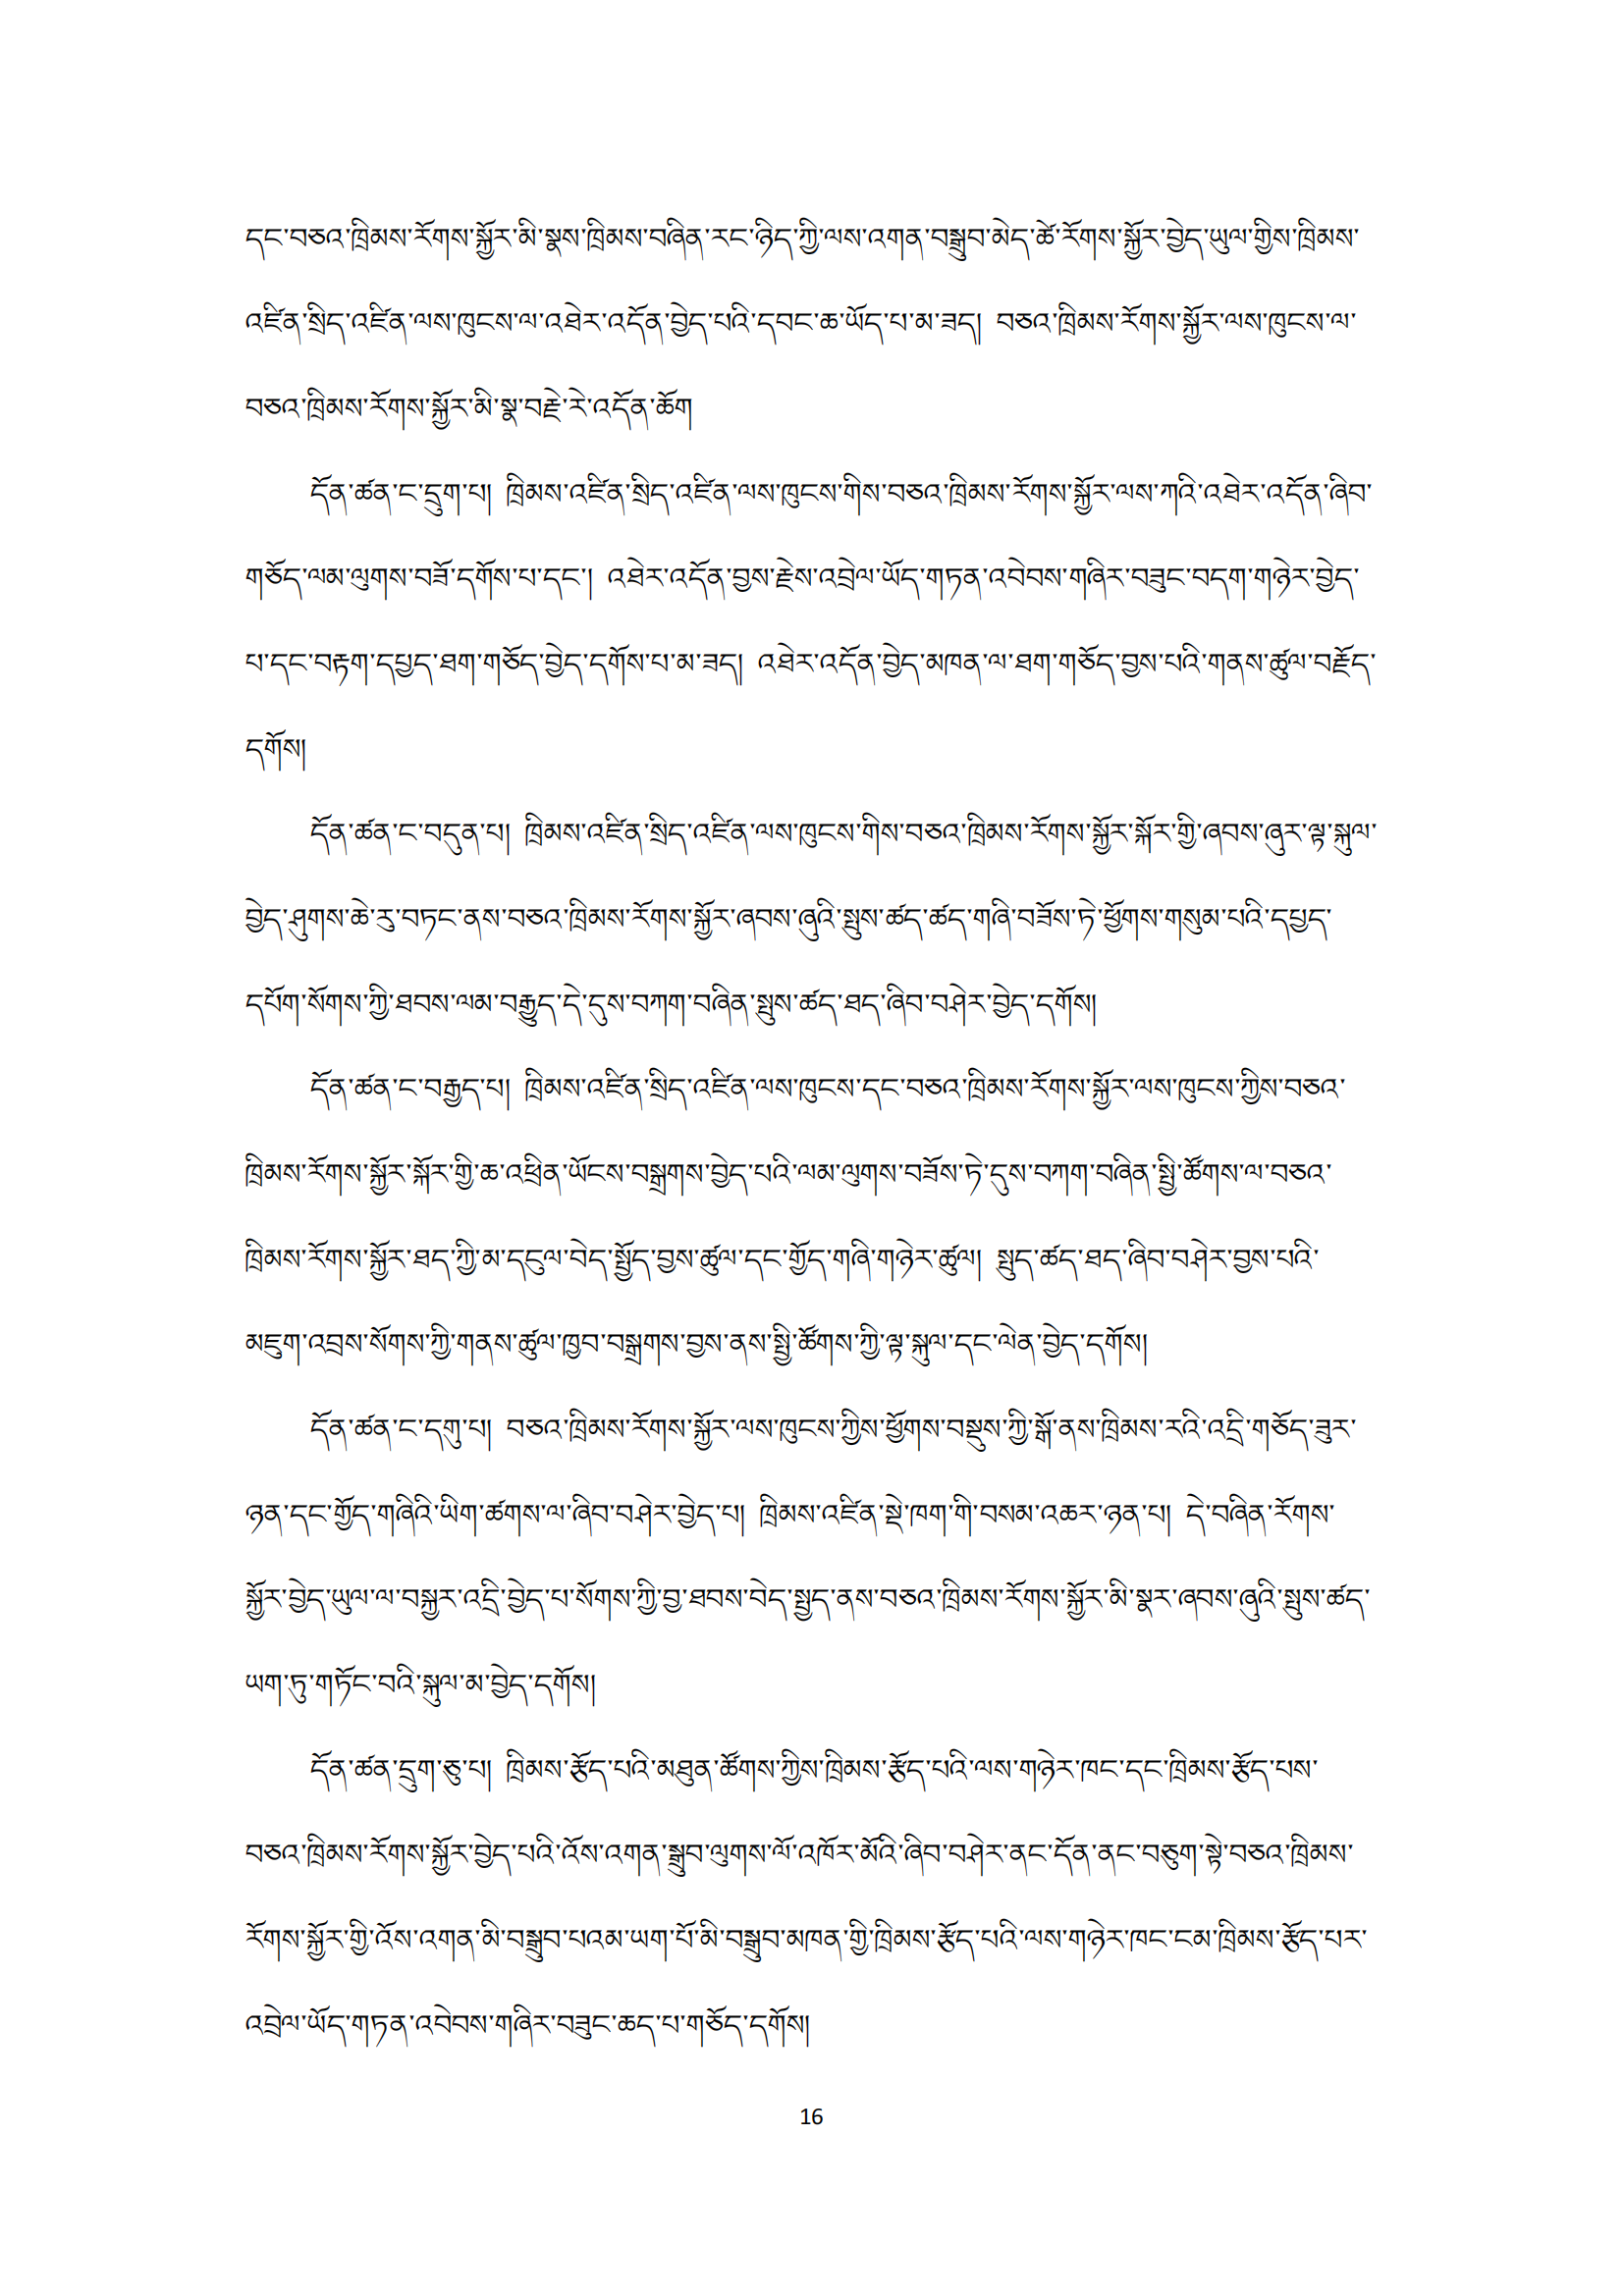 དང་བཅའ་ཁྲིམས་རོགས་སྐྱོར་མི་སྣས་ཁྲིམས་བཞིན་རང་ཉིད་ཀྱི་ལས་འགན་བསྒྲུབ་མེད་ཚེ་རོགས་སྐྱོར་བྱེད་ཡུལ་གྱིས་ཁྲིམས་
འཛིན་སྲིད་འཛིན་ལས་ཁུངས་ལ་འཐེར་འདོན་བྱེད་པའི་དབང་ཆ་ཡོད་པ་མ་ཟད། བཅའ་ཁྲིམས་རོགས་སྐྱོར་ལས་ཁུངས་ལ་
བཅའ་ཁྲིམས་རོགས་སྐྱོར་མི་སྣ་བརྗེ་རེ་འདོན་ཆོག
དོན་ཚན་ང་དྲུག་པ། ཁྲིམས་འཛིན་སྲིད་འཛིན་ལས་ཁུངས་གིས་བཅའ་ཁྲིམས་རོགས་སྐྱོར་ལས་ཀའི་འཐེར་འདོན་ཞིབ་
གཅོད་ལམ་ལུགས་བཟོ་དགོས་པ་དང་། འཐེར་འདོན་བྱས་རྗེས་འབྲེལ་ཡོད་གཏན་འབེབས་གཞིར་བཟུང་བདག་གཉེར་བྱེད་
པ་དང་བརྟག་དཔྱད་ཐག་གཅོད་བྱེད་དགོས་པ་མ་ཟད། འཐེར་འདོན་བྱེད་མཁན་ལ་ཐག་གཅོད་བྱས་པའི་གནས་ཚུལ་བརྗོད་
དགོས།
དོན་ཚན་ང་བདུན་པ། ཁྲིམས་འཛིན་སྲིད་འཛིན་ལས་ཁུངས་གིས་བཅའ་ཁྲིམས་རོགས་སྐྱོར་སྐོར་གྱི་ཞབས་ཞུར་ལྟ་སྐུལ་
བྱེད་ཤུགས་ཆེ་རུ་བཏང་ནས་བཅའ་ཁྲིམས་རོགས་སྐྱོར་ཞབས་ཞུའི་སྤུས་ཚད་ཚད་གཞི་བཟོས་ཏེ་ཕྱོགས་གསུམ་པའི་དཔྱད་
དཔོག་སོགས་ཀྱི་ཐབས་ལམ་བརྒྱུད་དེ་དུས་བཀག་བཞིན་སྤུས་ཚད་ཐད་ཞིབ་བཤེར་བྱེད་དགོས།
དོན་ཚན་ང་བརྒྱད་པ། ཁྲིམས་འཛིན་སྲིད་འཛིན་ལས་ཁུངས་དང་བཅའ་ཁྲིམས་རོགས་སྐྱོར་ལས་ཁུངས་ཀྱིས་བཅའ་
ཁྲིམས་རོགས་སྐྱོར་སྐོར་གྱི་ཆ་འཕྲིན་ཡོངས་བསྒྲགས་བྱེད་པའི་ལམ་ལུགས་བཟོས་ཏེ་དུས་བཀག་བཞིན་སྤྱི་ཚོགས་ལ་བཅའ་
ཁྲིམས་རོགས་སྐྱོར་ཐད་ཀྱི་མ་དངུལ་བེད་སྤྱོད་བྱས་ཚུལ་དང་གྱོད་གཞི་གཉེར་ཚུལ། སྤུད་ཚད་ཐད་ཞིབ་བཤེར་བྱས་པའི་
མཇུག་འབྲས་སོགས་ཀྱི་གནས་ཚུལ་ཁྱབ་བསྒྲགས་བྱས་ནས་སྤྱི་ཚོགས་ཀྱི་ལྟ་སྐུལ་དང་ལེན་བྱེད་དགོས།
དོན་ཚན་ང་དགུ་པ། བཅའ་ཁྲིམས་རོགས་སྐྱོར་ལས་ཁུངས་ཀྱིས་ཕྱོགས་བསྡུས་ཀྱི་སྒོ་ནས་ཁྲིམས་རའི་འདྲི་གཅོད་ཟུར་
ཉན་དང་གྱོད་གཞིའི་ཡིག་ཚགས་ལ་ཞིབ་བཤེར་བྱེད་པ། ཁྲིམས་འཛིན་སྡེ་ཁག་གི་བསམ་འཆར་ཉན་པ། དེ་བཞིན་རོགས་
སྐྱོར་བྱེད་ཡུལ་ལ་བསྐྱར་འདྲི་བྱེད་པ་སོགས་ཀྱི་བྱ་ཐབས་བེད་སྤྱད་ནས་བཅའ་ཁྲིམས་རོགས་སྐྱོར་མི་སྣར་ཞབས་ཞུའི་སྤུས་ཚད་
ཡག་ཏུ་གཏོང་བའི་སྐུལ་མ་བྱེད་དགོས།
དོན་ཚན་དྲུག་ཅུ་པ། ཁྲིམས་རྩོད་པའི་མཐུན་ཚོགས་ཀྱིས་ཁྲིམས་རྩོད་པའི་ལས་གཉེར་ཁང་དང་ཁྲིམས་རྩོད་པས་
བཅའ་ཁྲིམས་རོགས་སྐྱོར་བྱེད་པའི་འོས་འགན་སྒྲུབ་ལུགས་ལོ་འཁོར་མོའི་ཞིབ་བཤེར་ནང་དོན་ནང་བཅུག་སྟེ་བཅའ་ཁྲིམས་
རོགས་སྐྱོར་གྱི་འོས་འགན་མི་བསྒྲུབ་པའམ་ཡག་པོ་མི་བསྒྲུབ་མཁན་གྱི་ཁྲིམས་རྩོད་པའི་ལས་གཉེར་ཁང་ངམ་ཁྲིམས་རྩོད་པར་
འབྲེལ་ཡོད་གཏན་འབེབས་གཞིར་བཟུང་ཆད་པ་གཅོད་དགོས།
16